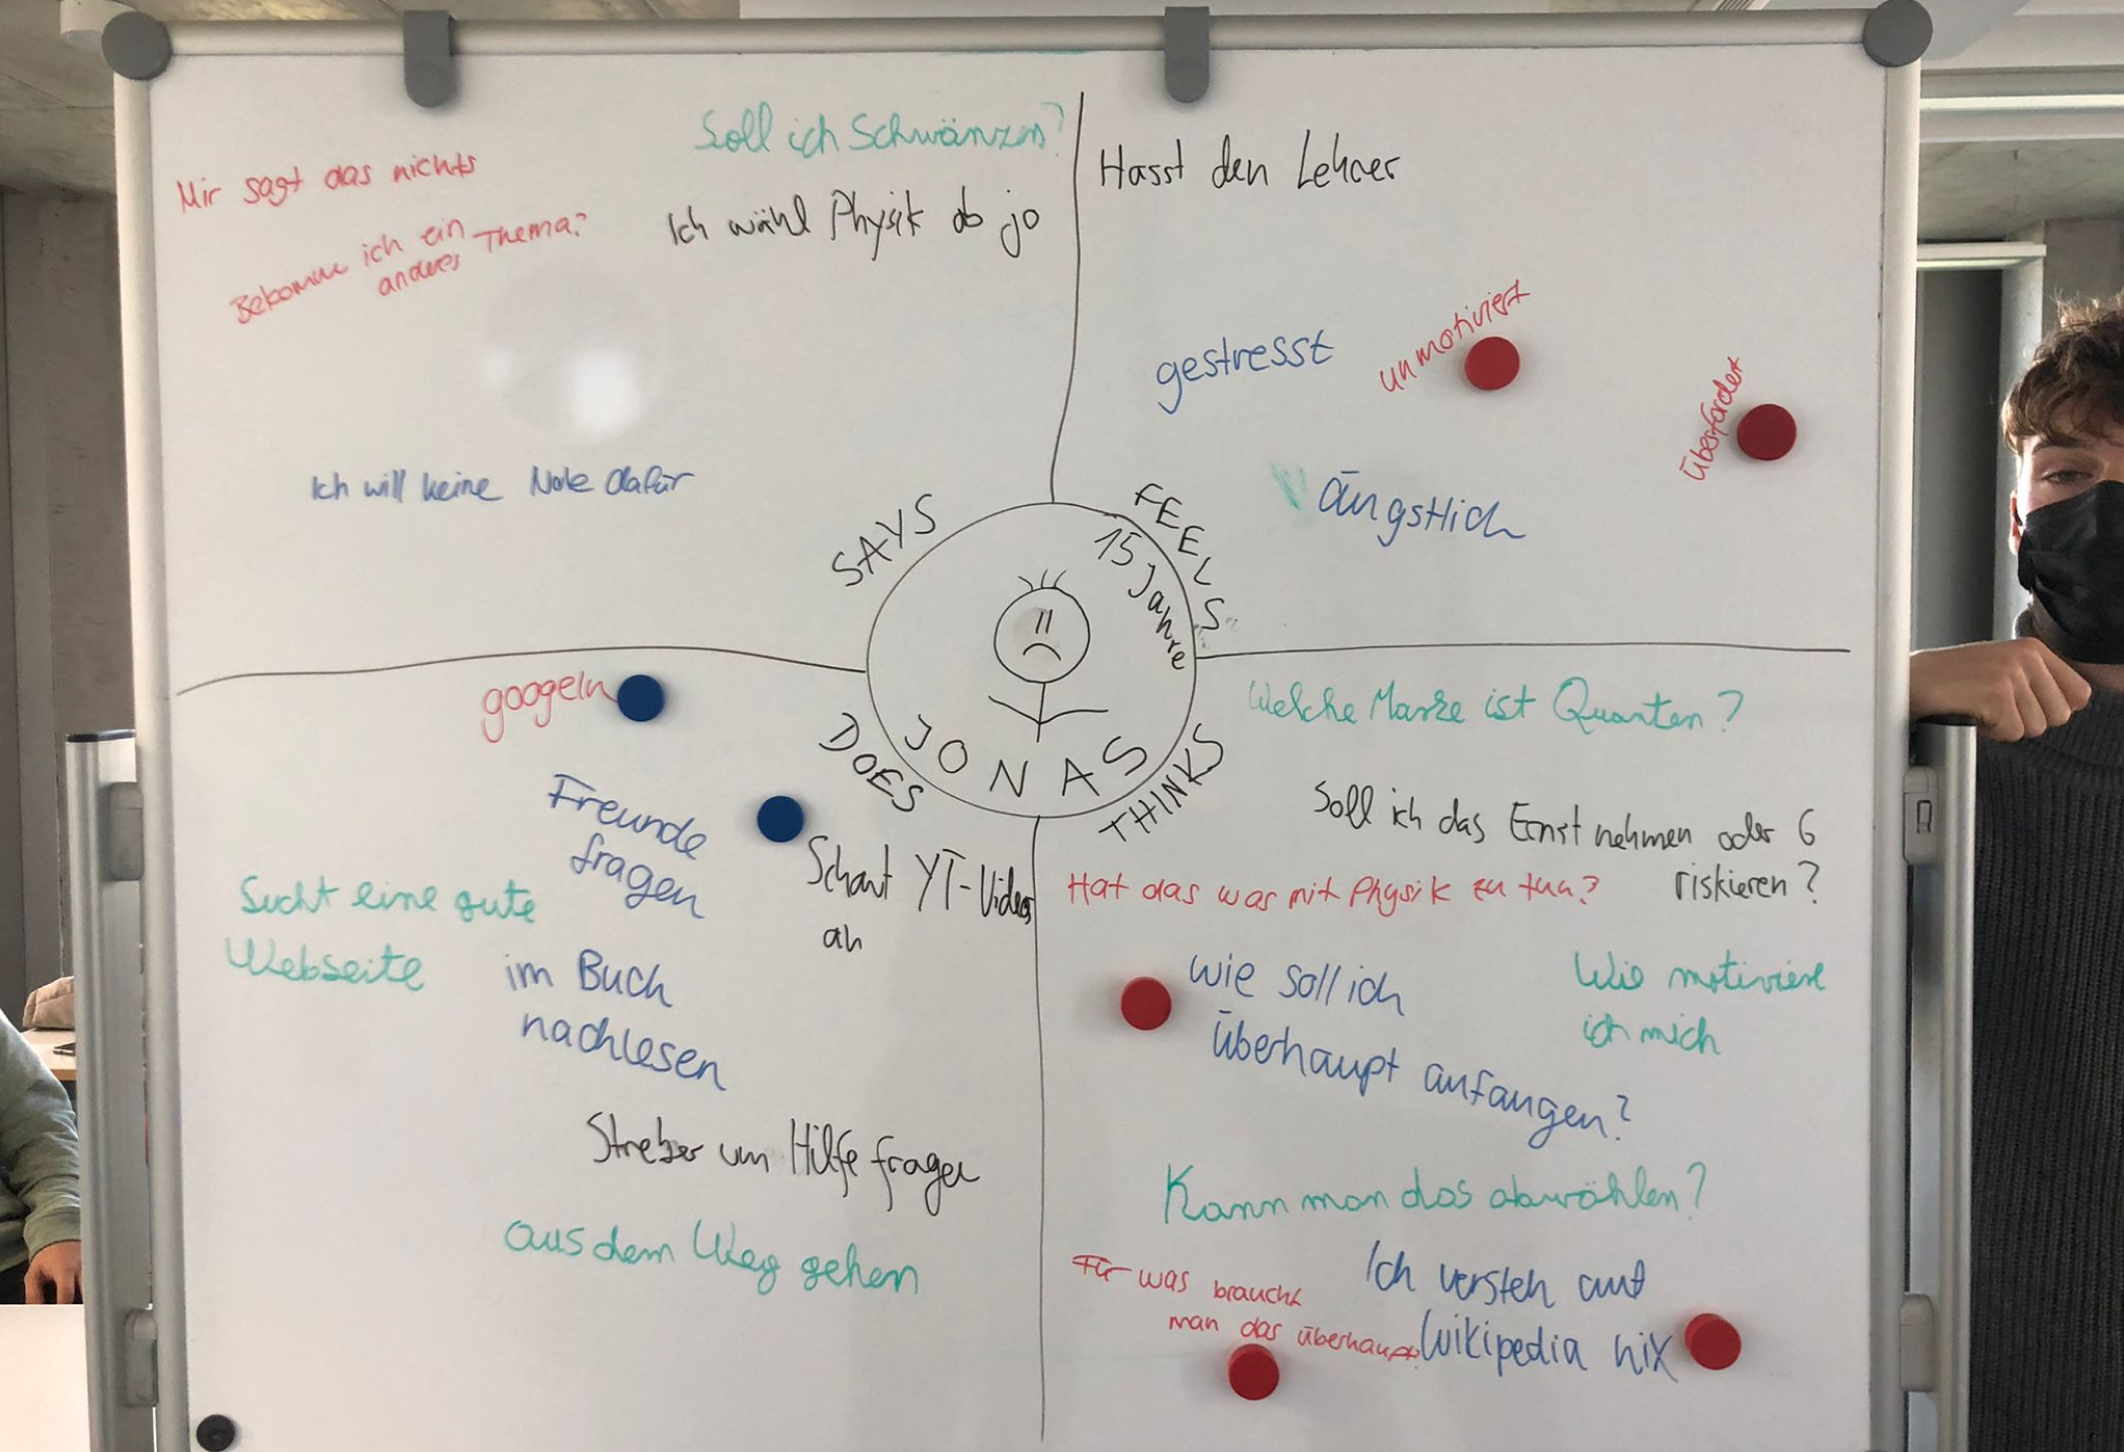 Soll ich Schwänzen?
Mir sagt das nichts
Ich wähl Physik ab jo
Bekomme ich ein
anderes Thema?
Ich will keine Note dafür
SAYS
Hasst den Lehrer
gestresst
unmotiviert
überfordert
ängstlich
FEELS
15 Jahre
JONAS
DOES
googeln
Freunde
fragen
Schaut YT-Videos
an
Sucht eine gute
Webseite
im Buch
nachlesen
Streber um Hilfe fragen
aus dem Weg gehen
THINKS
Welche Marke ist Quanten?
Soll ich das Ernst nehmen oder 6
riskieren?
Hat das was mit Physik zu tun?
wie soll ich
überhaupt anfangen?
Wie motiviere
ich mich
Kann man das abwählen?
Für was braucht
man das überhaupt?
Ich versteh auf
Wikipedia nix